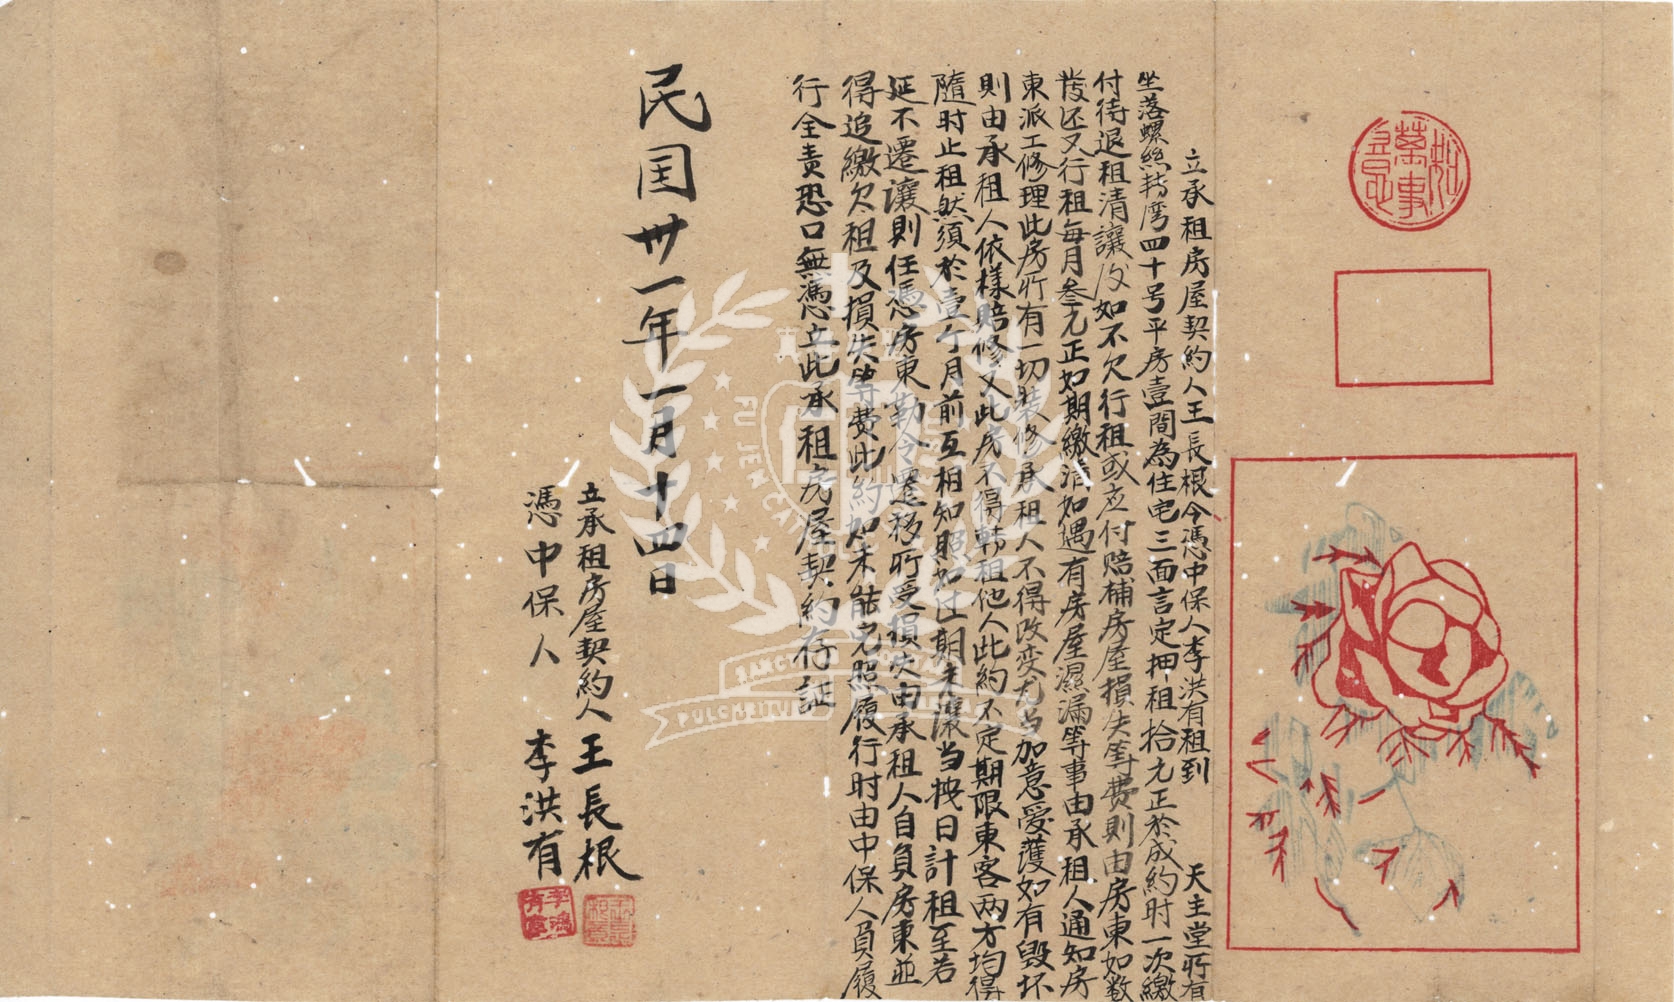 立承租房屋契約人王長根今憑中保人李洪有租到 天主堂所有
坐落螺絲轉灣四十号平房壹間為住宅三面言定押租拾元正於成約時一次繳
付待退租清讓後如不欠行租或应付賠補房屋損失等費則由房東如数
發还又行租每月叁元正如期繳清如遇有房屋濕漏等事由承租人通知房
東派工修理此房所有一切装修承租人不得改变尤当加意爱護如有毁坏
則由承租人依樣賠修又此房不得轉租他人此約不定期限東客两方均得
隨时止租然須於壹个月前互相知照如任期未讓当按日計租至若
延不遷讓則任憑房東勒令遷移所受損失由承租人自負房東並
得追繳欠租及損失等費此約如未能完照履行时由中保人負履
行全責恐口無憑立此承租房屋契約存証
民国卅一年一月十四日
立承租房屋契約人 王長根
憑中保人 李洪有
FU JEN CAT